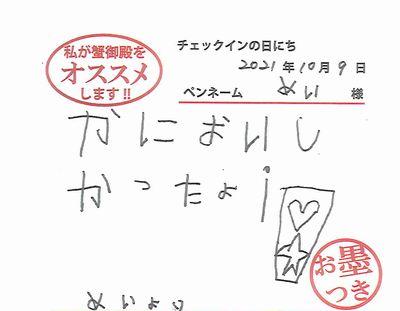 私が蟹御殿を
オススメ
します!!
チェックインの日にち
2021年10月9日
ペンネーム めい 様
かにおいし
かったよ!
お墨
つき
めいより